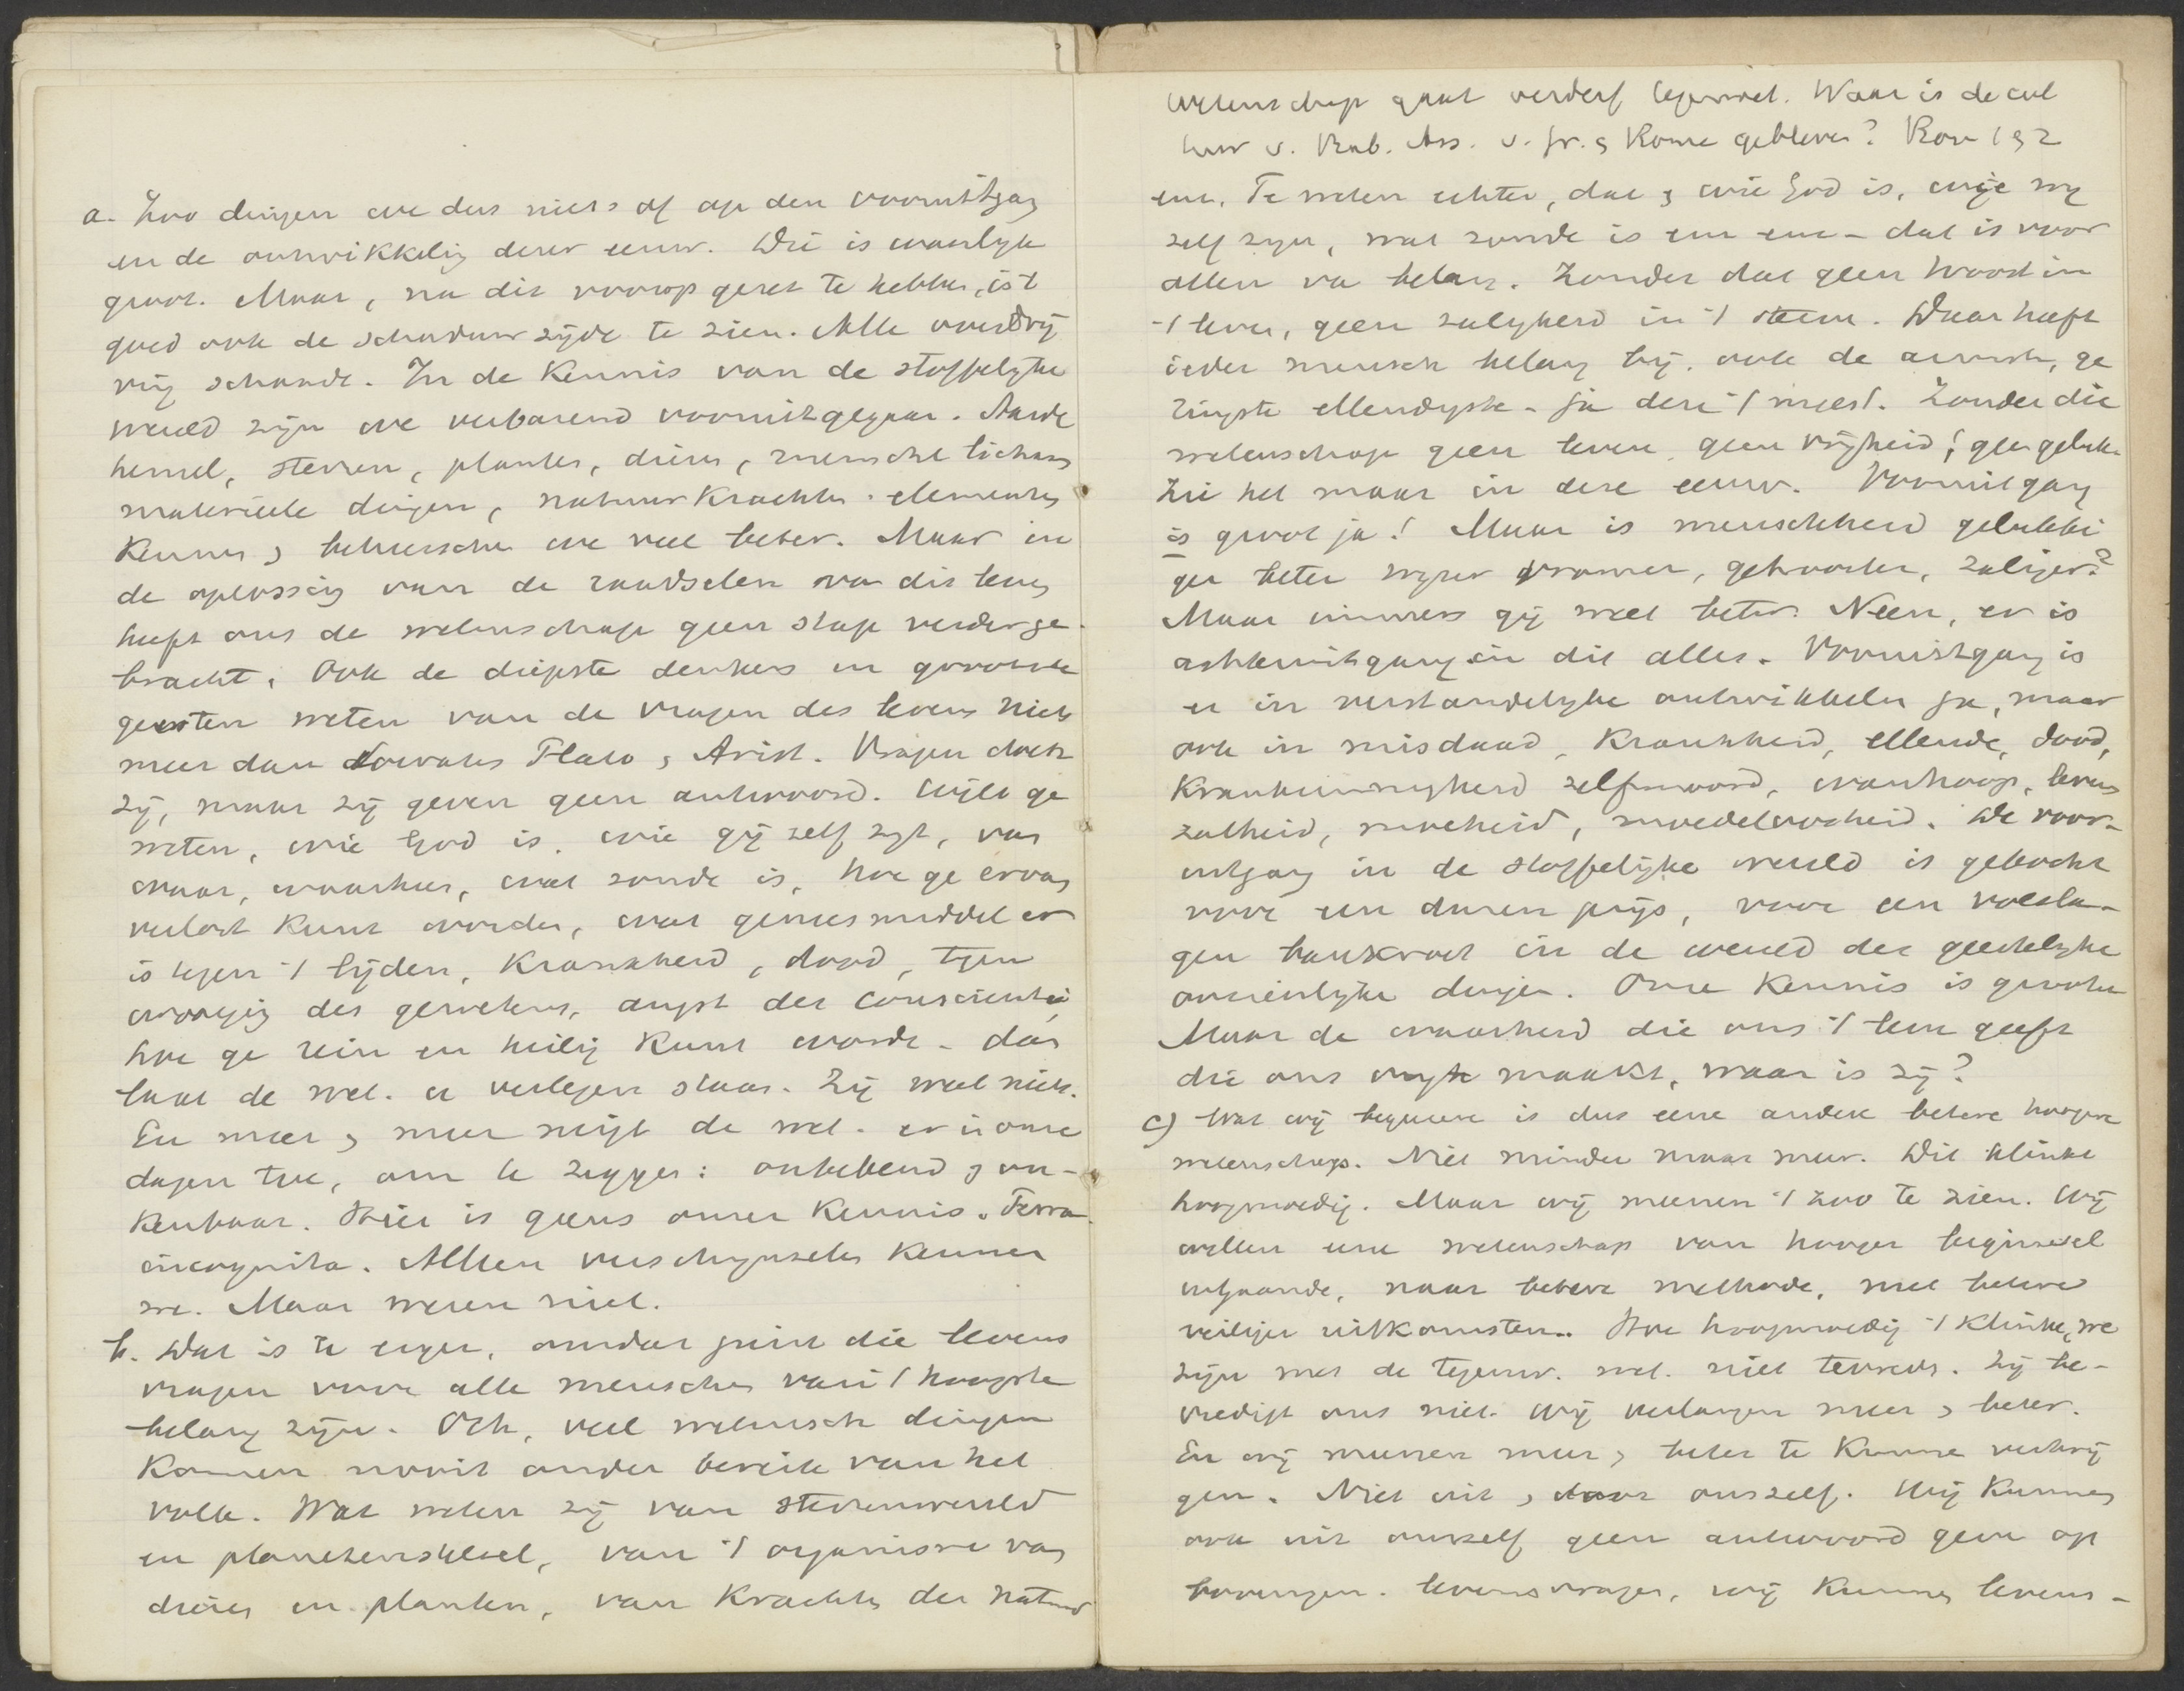 a. Zoo dingen we dus niets af op den vooruitgang
en de ontwikkeling dezer eeuw. Die is waarlijk
groot. Maar, na dit voorop gezet te hebben, is 't
goed ook de schaduwzijde te zien. Alle overdrij
ving schaadt. In de Kennis van de stoffelijke
wereld zijn we verbazend vooruitgegaan. Aarde
hemel, sterren, planten, dieren, menschel lichaam
materieele dingen, natuurkrachten, elementen
Kennen & beheerschen we veel beter. Maar in
de oplossing van de raadselen van dit leven
heeft ons de wetenschap geen stap verder ge
bracht. Ook de diepste denkers en grootste
geesten weten van de vragen des levens niets
meer dan Socrates Plato & Arist. Vragen doen
zij, maar zij geven geen antwoord. Wilt ge
weten, wie God is, wie gij zelf zijt, van
waar, waarheen, wat zonde is, hoe ge ervan
verlost Kunt worden, wat geneesmiddel er
is tegen 't lijden, Krankheid, dood, tegen
wroeging des gewetens, angst der conscientie,
hoe ge rein en heilig Kunt worden - dan
laat de wet. u verlegen staan. Zij weet niets.
En meer & meer neigt de wet. er in onze
dagen toe, om te zeggen: onbekend & on-
Kenbaar. Hier is grens onzer Kennis. Terra
incognita. Alleen verschijnselen Kennen
we. Maar wezen niet.
b. Dat is te erger, omdat juist die levens
vragen voor alle menschen van 't hoogste
belang zijn. Och, veel wetensch dingen
Komen nooit onder bereik van het
volk. Wat weten zij van sterrenwereld
en planetenstelsel, van 't organisme van
dieren en planten, van Krachten der natuur
wetenschap gaat verderf tegemoet. Waar is de cul
tuur v. Bab. Ass. v. Gr. & Rome gebleven? Rom 1 & 2
enz. Te weten echter, dat & wie God is, wije wij
zelf zijn, wat zonde is enz enz - dat is voor
allen va belang. Zonder dat geen troost in
't leven, geen zaligheid in 't sterven. Daar heeft
ieder mensch belang bij, ook de armste, ge
ringste ellendigste - ja deze 't meest. Zonder die
wetenschap geen leven, geen vrijheid, geen geluk.
Zie het maar in deze eeuw. Vooruitgang
is groot ja! Maar is menschheid gelukki
ger beter wijzer vromer, getrooster, zaliger?
Maar immers gij weet beter. Neen, er is
achteruitgang in dit alles. Vooruitgang is
er in verstandelijke ontwikkelen ja, maar
ook in misdaad, Krankheid, ellende, dood,
Krankzinnigheid zelfmoord, wanhoop, levens
zatheid, moeheid, moedeloosheid. De voor-
uitgang in de stoffelijke wereld is gekocht
voor een duren prijs, voor een volsla-
gen bankroet in de wereld der geestelijke
onzienlijke dingen. Onze Kennis is grooter
Maar de waarheid die ons 't leven geeft
die ons vrij maakt, waar is zij?
c) Wat wij begeeren is dus eene andere betere hoogere
wetenschap. Niet minder maar meer. Dit klinkt
hoogmoedig. Maar wij meenen 't zoo te zien. Wij
willen eene wetenschap van hooger beginsel
uitgaande, naar betere methode, met betere
veiliger uitkomsten. Hoe hoogmoedig 't Klinke, we
zijn met de tegenw. wet. niet tevreden. Zij be-
vredigt ons niet. Wij verlangen meer & beter.
En wij meenen meer & beter te Kunnen verkrij
gen. Niet uit & door onszelf. Wij Kunnen
ook uit onszelf geen antwoord geven op
levensvragen, wij Kunnen levens-